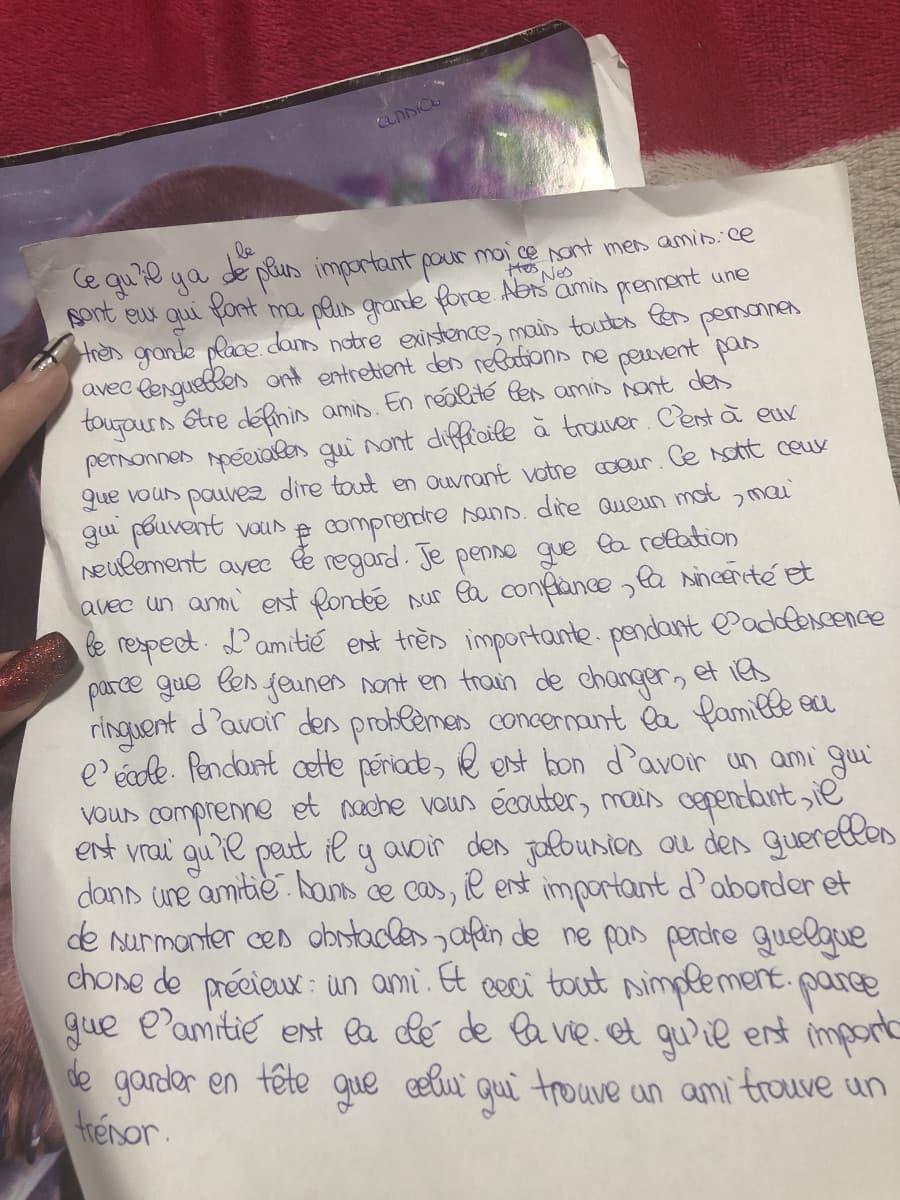 classica
Ce qu'il y a le plus important pour moi ce sont mes amis: ce
sont eux qui font ma plus grande force. Nos amis prennent une
très grande place dans notre existence, mais toutes les personnes
avec lesquelles ont entretient des relations ne peuvent pas
toujours être définis amis. En réalité les amis sont des
personnes spéciales qui sont difficile à trouver. C'est à eux
que vous pouvez dire tout en ouvrant votre coeur. Ce sont ceux
qui peuvent vous comprendre sans dire aucun mot, mai
seulement avec le regard. Je pense que la relation
avec un ami est fondée sur la confiance, la sincérité et
le respect. L'amitié est très importante pendant l'adolescence
parce que les jeunes sont en train de changer, et ils
risquent d'avoir des problèmes concernant la famille ou
l'école. Pendant cette période, il est bon d'avoir un ami qui
vous comprenne et sache vous écouter, mais cependant, il
est vrai qu'il peut il y avoir des jalousies ou des querelles
dans une amitié. Dans ce cas, il est important d'aborder et
de surmonter ces obstacles, afin de ne pas perdre quelque
chose de précieux: un ami. Et ceci tout simplement parce
que l'amitié est la clé de la vie. et qu'il est importa
de garder en tête que celui qui trouve un ami trouve un
trésor.